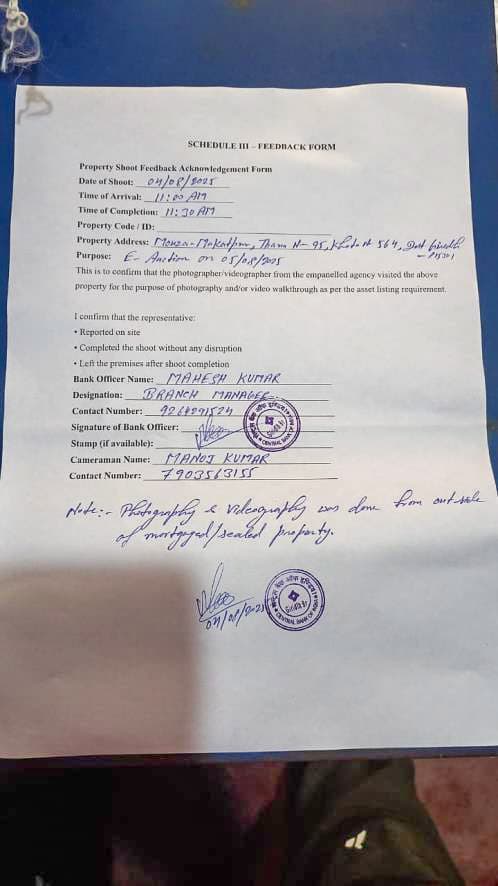 SCHEDULE III – FEEDBACK FORM
Property Shoot Feedback Acknowledgement Form
Date of Shoot: 04/08/2025
Time of Arrival: 11:00 AM
Time of Completion: 11:30 AM
Property Code / ID:
Property Address: Mouza- Makatpur, Thana No- 95, Khata No 564, Dist
Purpose: E- Auction on 05/08/2025
This is to confirm that the photographer/videographer from the empanelled agency visited the above
property for the purpose of photography and/or video walkthrough as per the asset listing requirement.
I confirm that the representative:
• Reported on site
• Completed the shoot without any disruption
• Left the premises after shoot completion
Bank Officer Name: MAHESH KUMAR
Designation: BRANCH MANAGER
Contact Number: 9264291524
Signature of Bank Officer:
Stamp (if available):
Cameraman Name: MANOJ KUMAR
Contact Number: 7903563155
Note:- Photography & Videography was done from outside
of mortgaged/sealed property.
04/08/2025
सेन्ट्रल बैंक ऑफ इंडिया
CENTRAL BANK OF INDIA